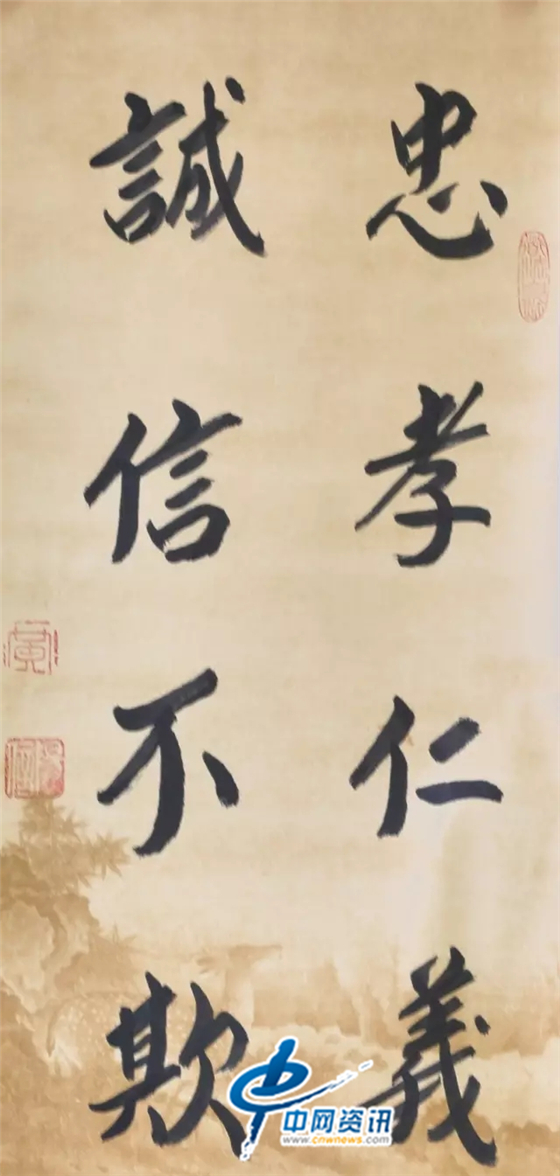 忠孝仁義
誠信不欺
中网资讯
www.cnwnews.com